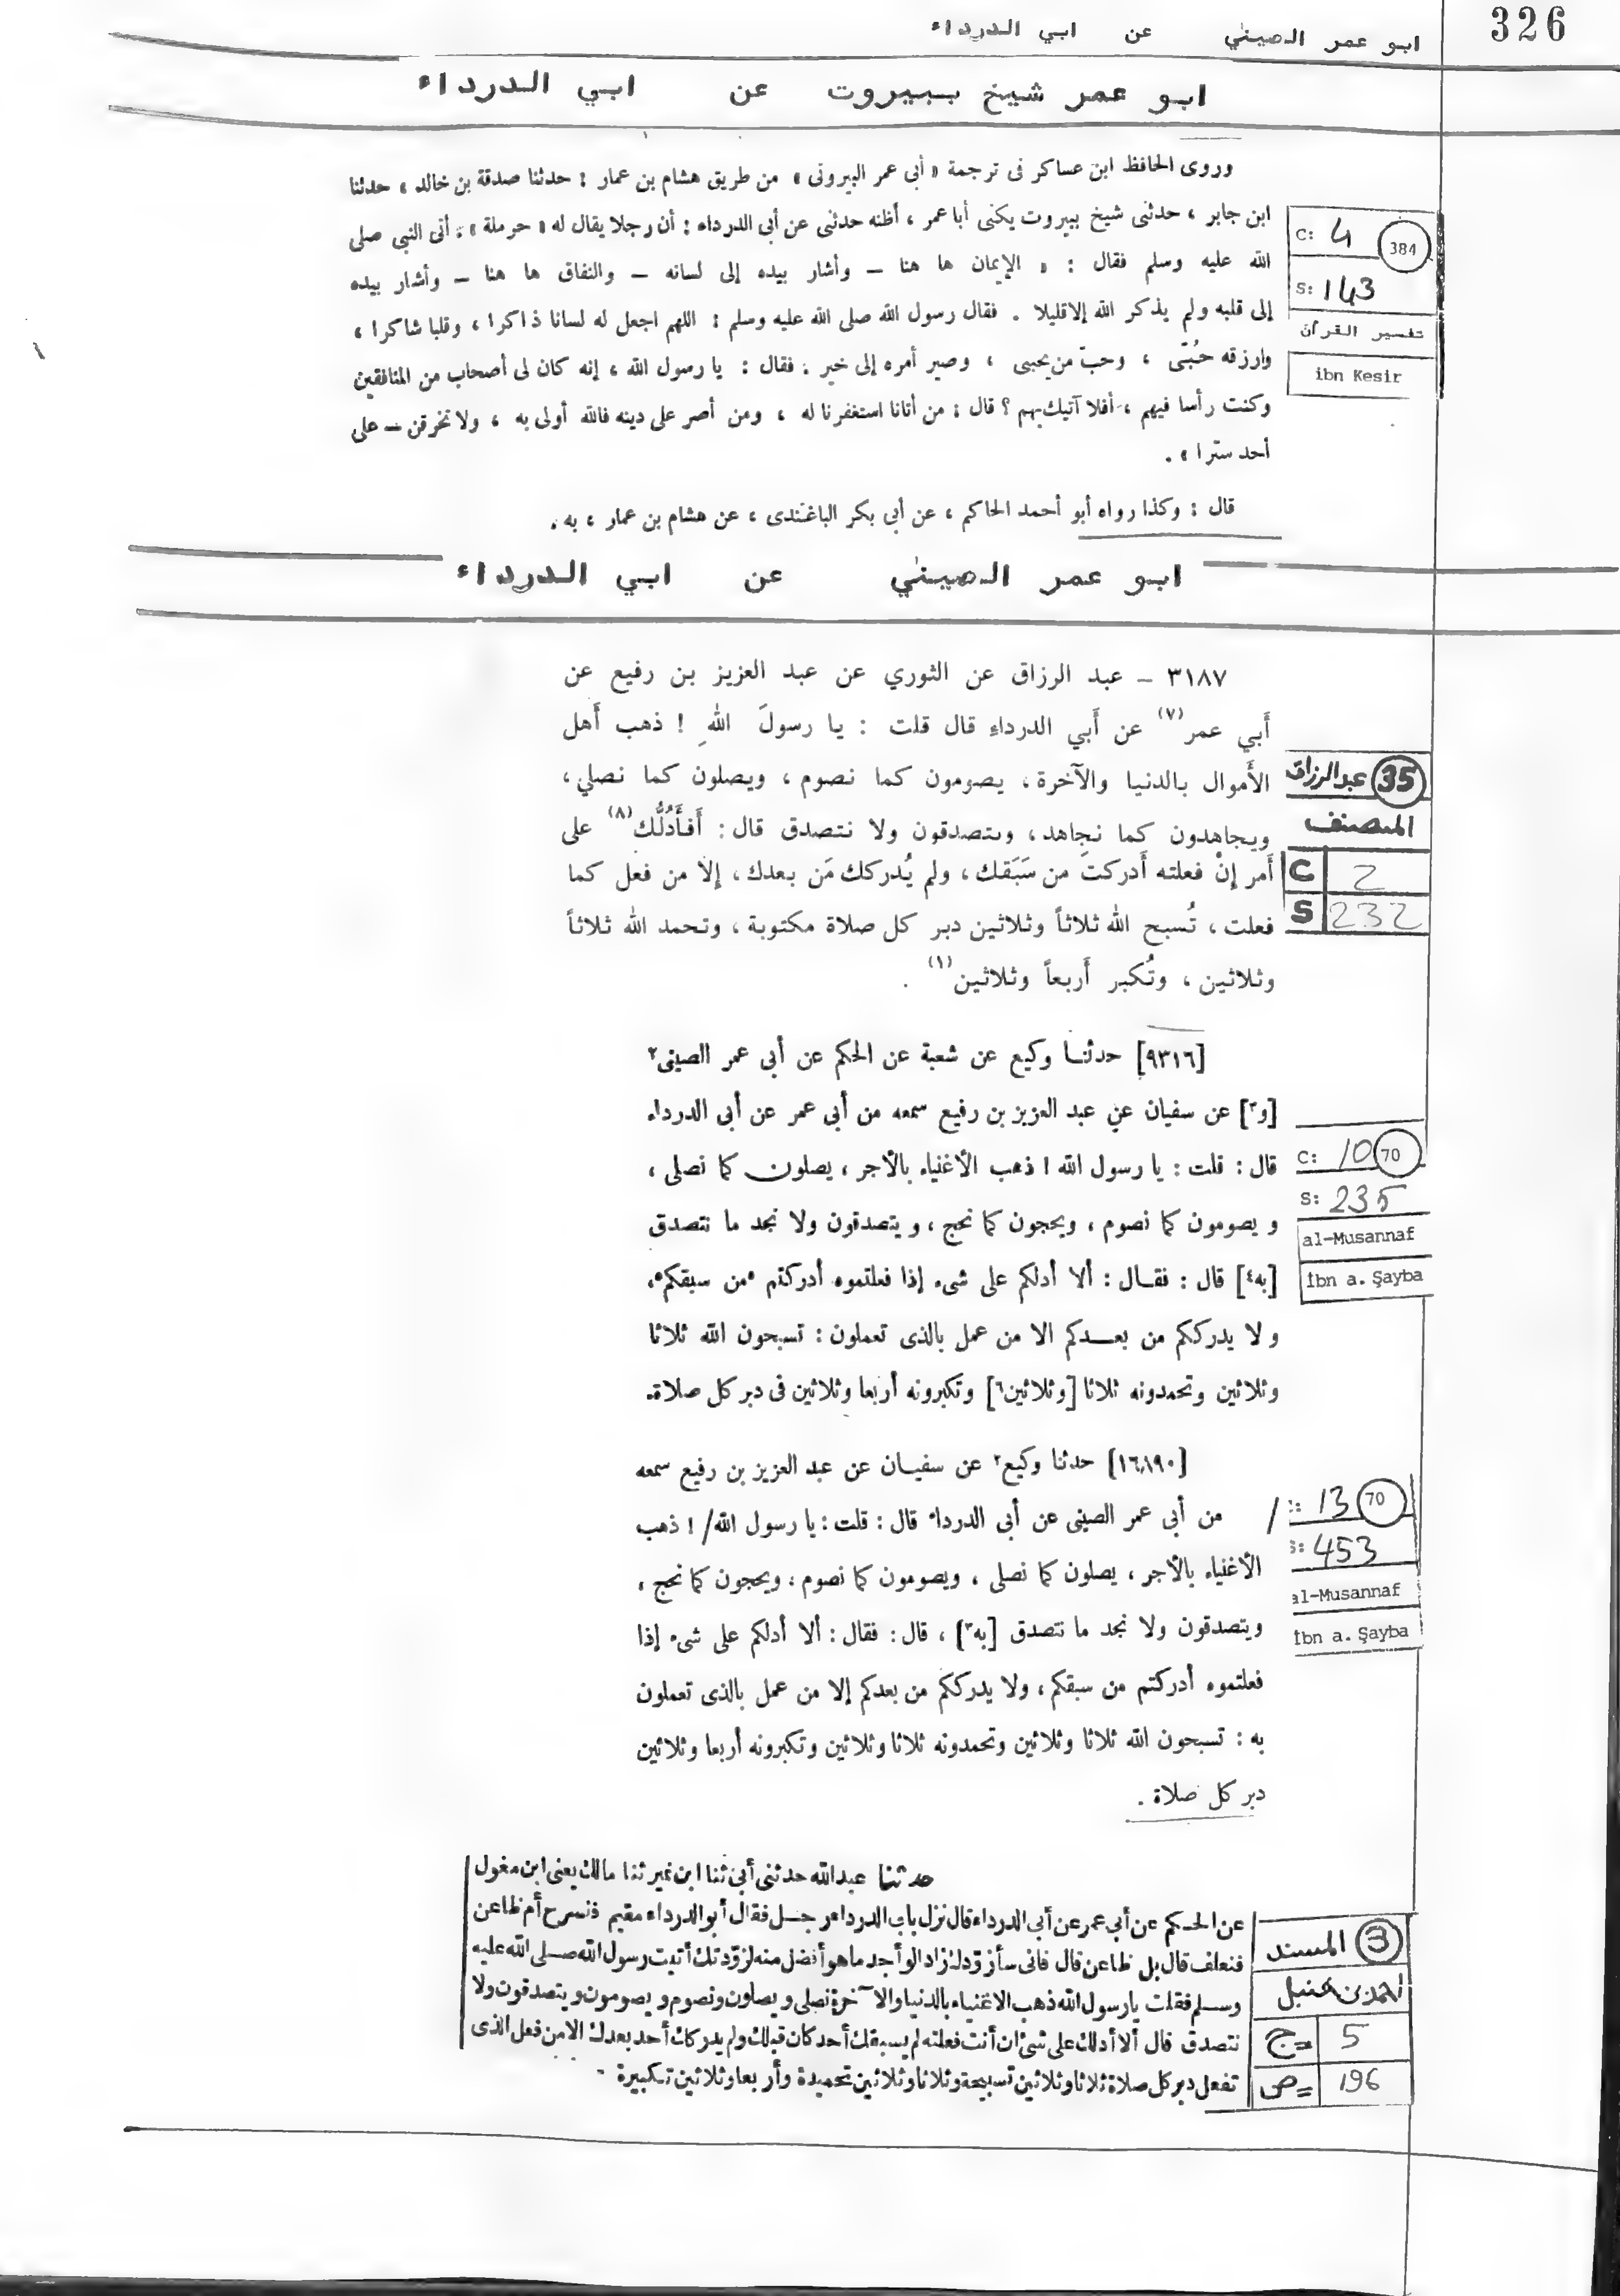 326
ابو عمر الصيني عن ابي الدرداء
ابو عمر شيخ ببيروت عن ابي الدرداء
وروى الحافظ ابن عساكر فى ترجمة « أبى عمر البيروتى » من طريق هشام بن عمار : حدثنا صدقة بن خالد ، حدثنا
ابن جابر ، حدثنى شيخ ببيروت يكنى أبا عمر ، أظنه حدثنى عن أبى الدرداء : أن رجلا يقال له « حرملة » . أتى النبي صلى
الله عليه وسلم فقال : « الإيمان ها هنا – وأشار بيده إلى لسانه – والنفاق ها هنا – وأشار بيده
إلى قلبه ولم يذكر الله إلا قليلا . فقال رسول الله صلى الله عليه وسلم : اللهم اجعل له لسانا ذاكرا ، وقلبا شاكرا ،
وارزقه حُبّى ، وحبّ من يحبى ، وصير أمره إلى خير . فقال : يا رسول الله ، إنه كان لى أصحاب من المنافقين
وكنت رأسا فيهم ، أفلا آتيك بهم ؟ قال : من أتانا استغفرنا له ، ومن أصر على دينه فالله أولى به ، ولا تخرقن – على
أحد سترا » .
قال : وكذا رواه أبو أحمد الحاكم ، عن أبى بكر الباغندى ، عن هشام بن عمار ، به .
C: 4 384
S: 143
تفسير القرآن
ibn Kesir
ابو عمر الصيني عن ابي الدرداء
٣١٨٧ – عبد الرزاق عن الثوري عن عبد العزيز بن رفيع عن
أَبي عمر(٧) عن أَبي الدرداءِ قال قلت : يا رسولَ اللهِ ! ذهب أَهل
الأَموال بالدنيا والآخرة ، يصومون كما نصوم ، ويصلون كما نصلي ،
ويجاهدون كما نجاهد ، ويتصدقون ولا نتصدق قال : أَفأَدُلُّك(٨) على
أَمر إنْ فعلته أَدركتَ من سَبَقك ، ولم يُدركك مَن بعدك ، إلا من فعل كما
فعلت ، تُسبح الله ثلاثاً وثلاثين دبر كل صلاة مكتوبة ، وتحمد الله ثلاثاً
وثلاثين ، وتُكبر أَربعاً وثلاثين(١) .
35 عبد الرزاق
المصنف
C 2
S 232
[٩٣١٦] حدثنا وكيع عن شعبة عن الحكم عن أبى عمر الصينى٢
[و٣] عن سفيان عن عبد العزيز بن رفيع سمعه من أبى عمر عن أبى الدرداء
قال : قلت : يا رسول الله ! ذهب الأغنياء بالأجر ، يصلون كما نصلى ،
و يصومون كما نصوم ، ويحجون كما نحج ، و يتصدقون ولا نجد ما نتصدق
[به٤] قال : فقال : ألا أدلكم على شىء إذا فعلتموه أدركتم ٥من سبقكم٥،
و لا يدرككم من بعدكم الا من عمل بالذى تعملون : تسبحون الله ثلاثا
وثلاثين وتحمدونه ثلاثا [وثلاثين٦] وتكبرونه أربعا وثلاثين فى دبر كل صلاة.
C: 10 70
S: 235
al-Musannaf
İbn a. Şayba
[١٦٨٩٠] حدثنا وكيع٢ عن سفيان عن عبد العزيز بن رفيع سمعه
من أبى عمر الصينى عن أبى الدرداء قال : قلت : يا رسول الله/ ! ذهب /
الأغنياء بالأجر ، يصلون كما نصلى ، ويصومون كما نصوم ، ويحجون كما نحج ،
ويتصدقون ولا نجد ما نتصدق [به٣] ، قال : فقال : ألا أدلكم على شىء إذا
فعلتموه أدركتم من سبقكم ، ولا يدرككم من بعدكم إلا من عمل بالذى تعملون
به : تسبحون الله ثلاثا وثلاثين وتحمدونه ثلاثا وثلاثين وتكبرونه أربعا وثلاثين
دبر كل صلاة .
: 13 70
S: 453
al-Musannaf
İbn a. Şayba
حدثنا عبدالله حدثنى أبى ثنا ابن نمير ثنا مالك يعنى ابن مغول
عن الحكم عن أبى عمر عن أبى الدرداء قال نزل بابى الدرداء رجل فقال أبو الدرداء مقيم فنسرح أم ظاعن
فنعلف قال بل ظاعن قال فانى سأزودك زادا لو أجد ما هو أفضل منه لزودتك أتيت رسول الله صلى الله عليه
وسلم فقلت يا رسول الله ذهب الاغنياء بالدنيا والآخرة نصلى و يصلون ونصوم و يصومون و يتصدقون ولا
نتصدق قال ألا أدلك على شئ ان أنت فعلته لم يسبقك أحد كان قبلك ولم يدركك أحد بعدك الا من فعل الذى
تفعل دبر كل صلاة ثلاثا وثلاثين تسبيحة وثلاثا وثلاثين تحميدة وأربعا وثلاثين تكبيرة
3 المسند
احمد بن حنبل
ج= 5
ص= 196